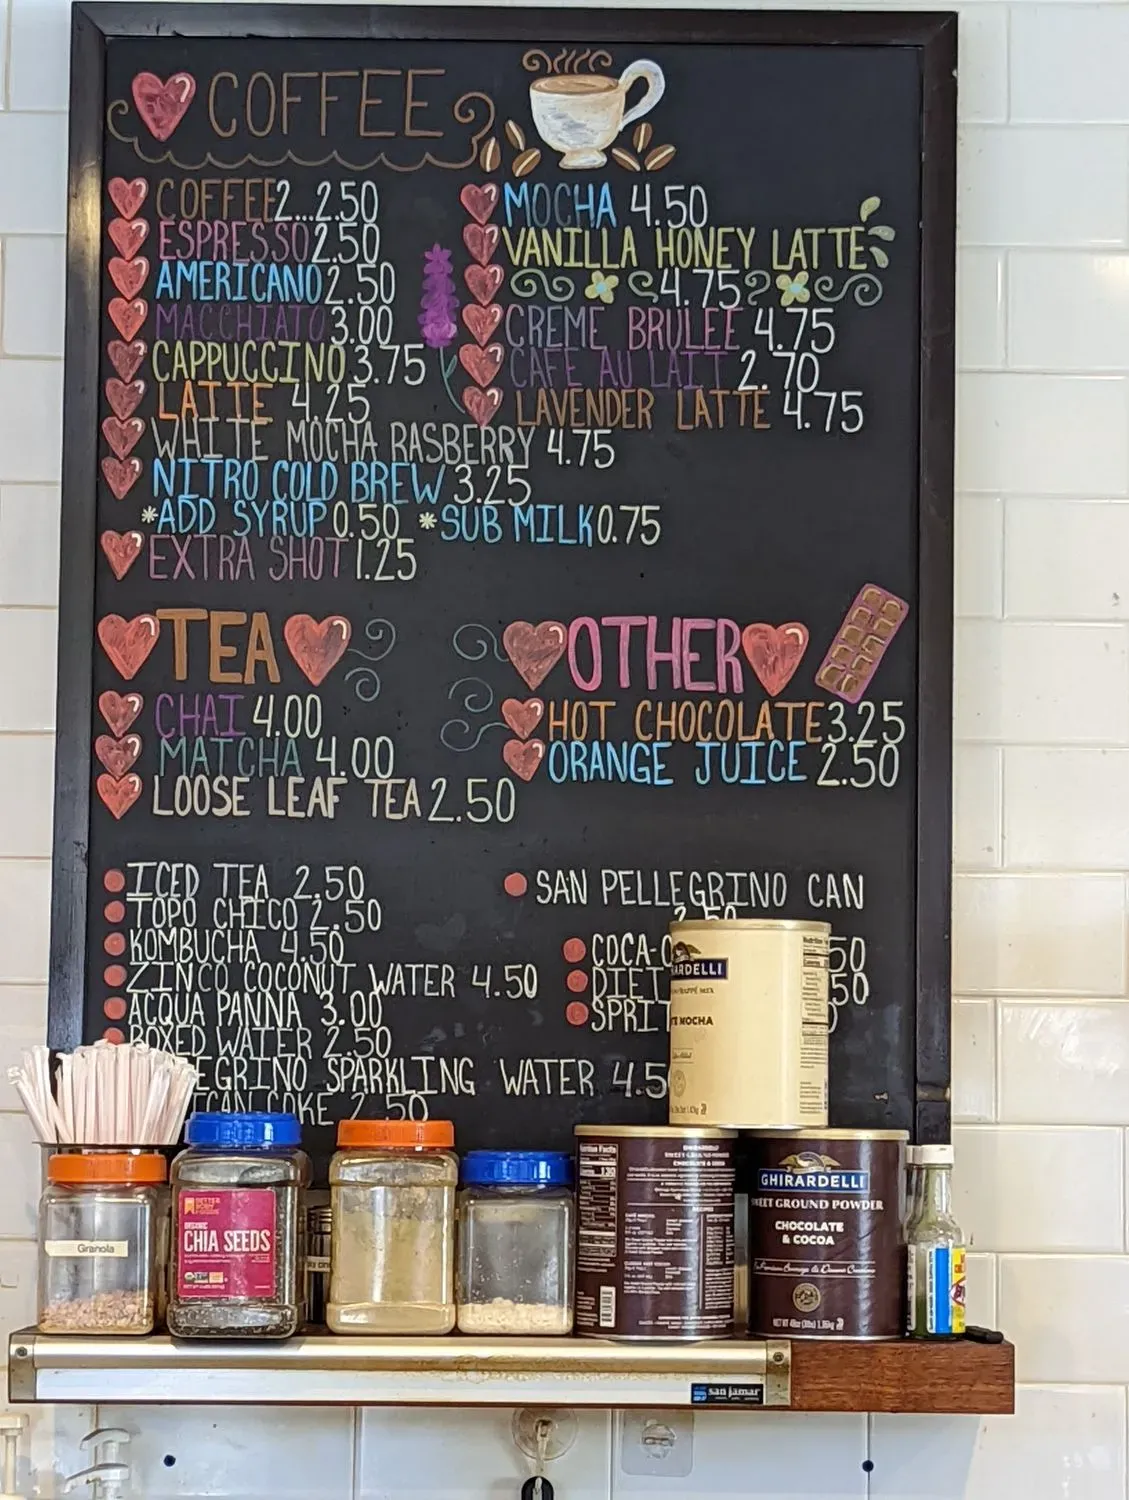 COFFEE
COFFEE 2...2.50
ESPRESSO 2.50
AMERICANO 2.50
MACCHIATO 3.00
CAPPUCCINO 3.75
LATTE 4.25
WHITE MOCHA RASBERRY 4.75
NITRO COLD BREW 3.25
*ADD SYRUP 0.50 *SUB MILK 0.75
EXTRA SHOT 1.25
MOCHA 4.50
VANILLA HONEY LATTE
4.75
CREME BRULEE 4.75
CAFE AU LAIT 2.70
LAVENDER LATTE 4.75
TEA
CHAI 4.00
MATCHA 4.00
LOOSE LEAF TEA 2.50
OTHER
HOT CHOCOLATE 3.25
ORANGE JUICE 2.50
ICED TEA 2.50
TOPO CHICO 2.50
KOMBUCHA 4.50
ZINCO COCONUT WATER 4.50
ACQUA PANNA 3.00
BOXED WATER 2.50
EGRINO SPARKLING WATER 4.5
ICAN COKE 2.50
SAN PELLEGRINO CAN
2.50
COCA- 50
DIET 50
SPRI
RARDELLI
TE MOCHA
Granola
BETTER BODY FOODS
ORGANIC
CHIA SEEDS
Nutrition Facts
130
CHOCOLATE & COCOA
GHIRARDELLI
SWEET GROUND POWDER
CHOCOLATE
& COCOA
san jamar